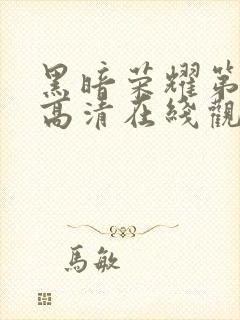 黑暗荣耀第
高清在线觀
馬敏